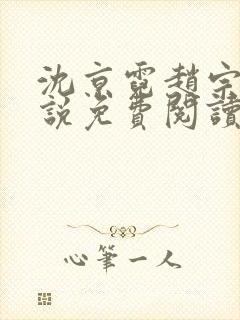 沈京霓趙宗
說免費閱讀
心筆一人